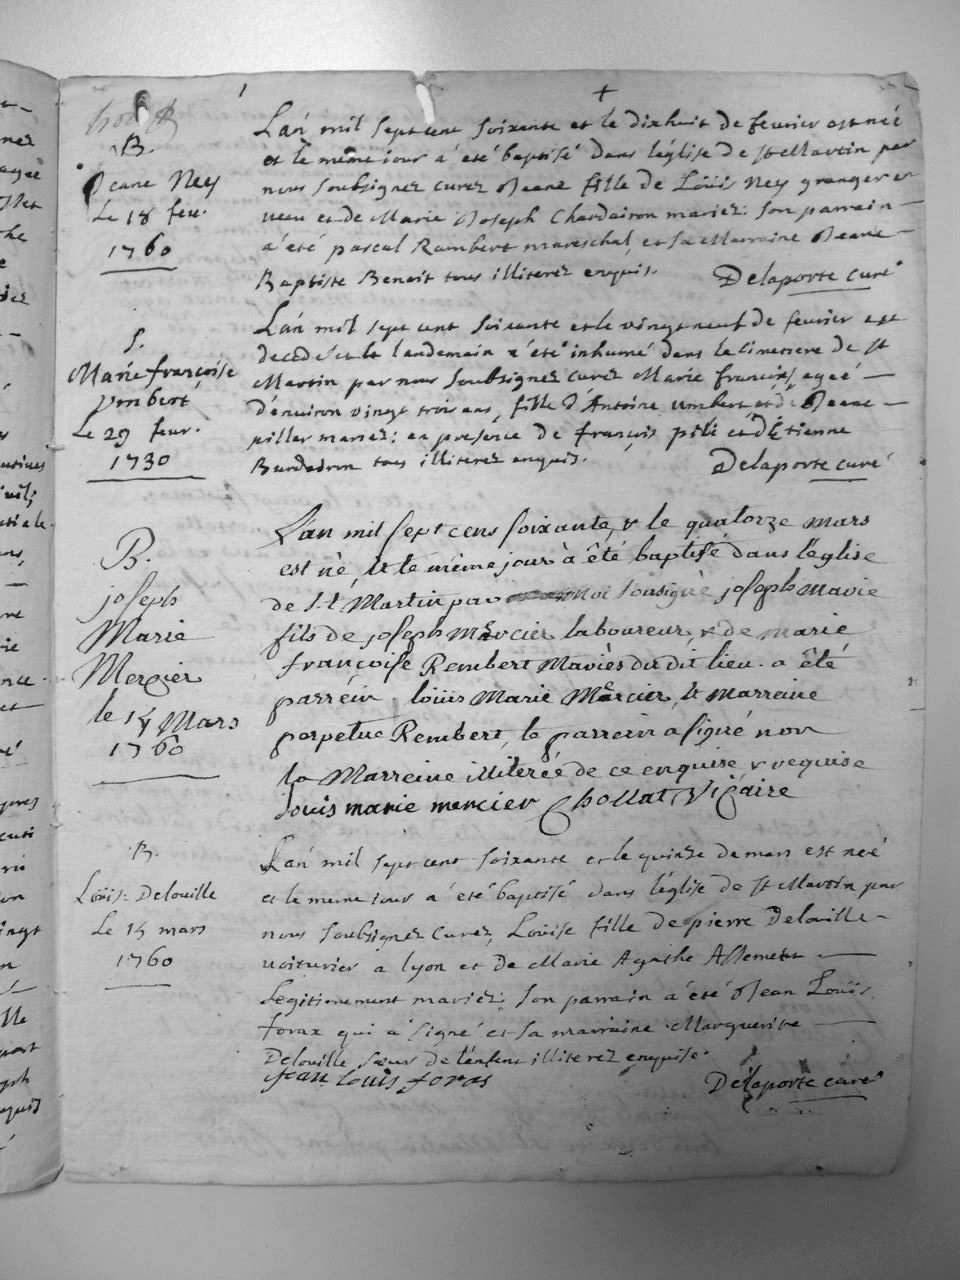 B.
Jeane Ney
Le 18 feu.
1760
L'an mil sept cent soixante et le dixhuit de feurier est née
et le même iour a été baptisé dans l'église de st Martin par
nous soubsignez curez Jeane fille de Loüis Ney granger
et de Marie Joseph Chardairon mariez: son parrain
a été pascal Rambert mareschal, et sa Marraine Jeane
Baptiste Benoit tous illiterez enquis. Delaporte curé
S.
Marie françoise
ymbert
Le 29 feur.
1730
L'an mil sept cent soixante et le vingt neuf de feurier est
decedé et le landemain a été inhumé dans le cimetiere de st
Martin par nous soubsignez curez Marie francoise ageé
d'enuiron vingt trois ans, fille d'Antoine umbert et de Jeane
piller mariez: en presence de françois pilé et d'Etienne
Burdadron tous illiterez enquis. Delaporte curé
B.
joseph
Marie
Mercier
le 14 Mars
1760
L'an mil sept cens soixante, & le quatorze mars
est né, et le même jour à êté baptisé dans l'église
de S.t Martin par moi sousigné joseph marie
fils de joseph Mercier laboureur, & de marie
françoise Rembert Mariés du dit lieu. a êté
parrein louis Marie Mercier, et marreine
perpetue Rembert, le parrein a signé non
la Marreine illiterée de ce enquise & requise
Louis marie mercier Chollat Vicaire
B.
Loüise Delouille
Le 15 mars
1760
L'an mil sept cent soixante et le quinze de mars est neé
et le meme iour a été baptisé dans l'église de st Martin par
nous soubsignez curez, Louise fille de pierre Delouille
uoiturier a lyon et de Marie Agathe
Legitimement mariez: son parrain a été Jean Loüis
forax qui a signé et sa marraine Marguerite
Delouille sœur de l'enfent illiterez enquise.
jean Louis foras Delaporte curé